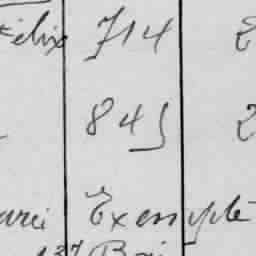 Félix 714 2
845 2
arei Exempté
137 Boi